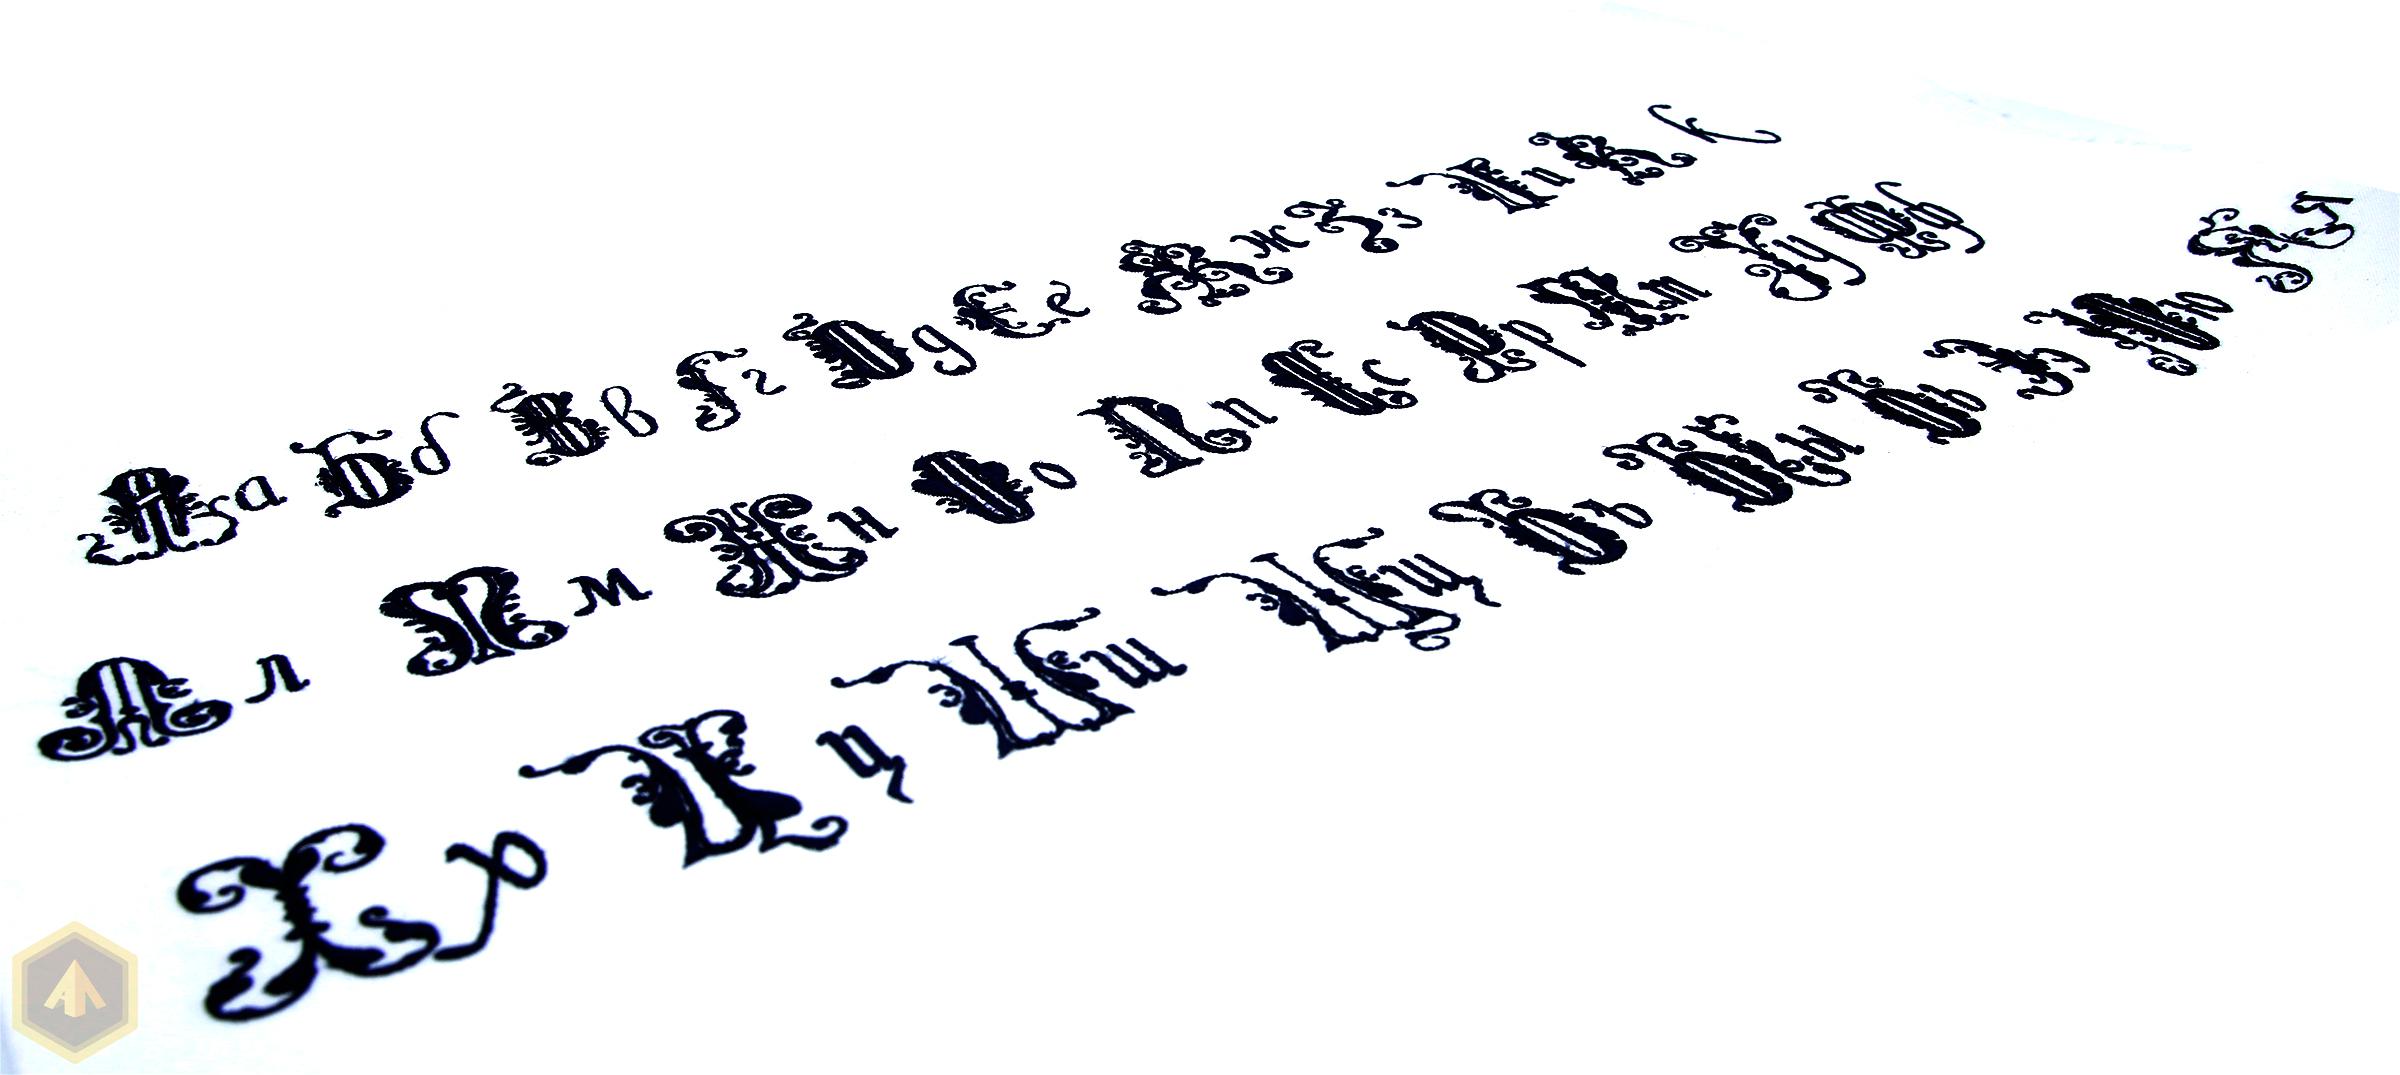 Аа Бб Вв Гг Дд Ее Жж Зз Ии Кк
Лл Мм Нн Оо Пп Сс Рр Тт Уу Фф
Хх Цц Шш Щщ Ъъ Ыы Ьь Ээ Юю Яя